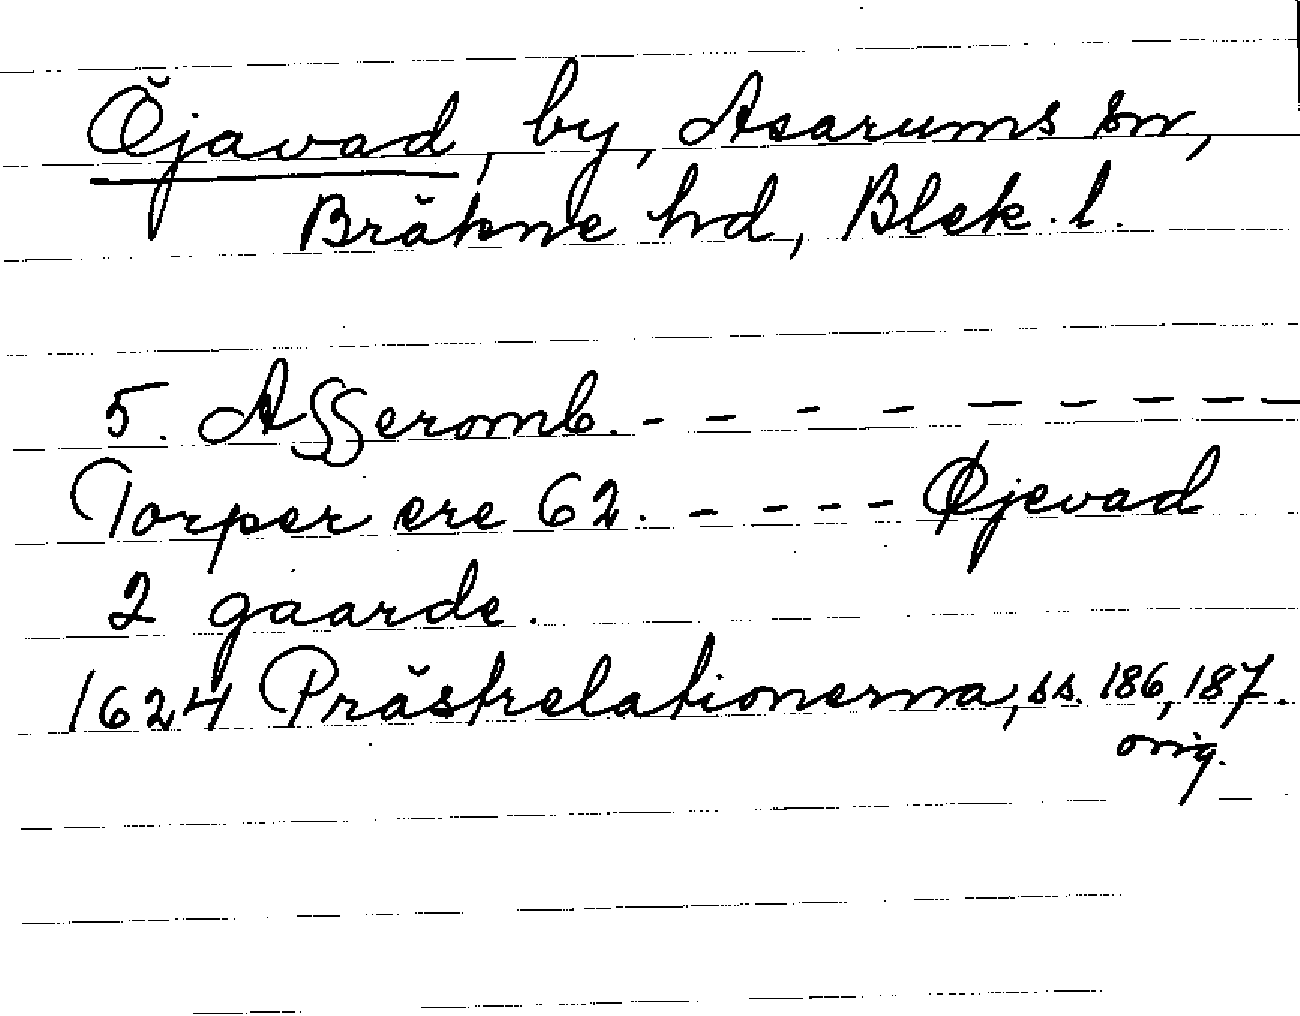 Öjavad, by, Asarums sn,
Bräkne hd, Blek. l.
5. Asseromb. - - - - - - - - - -
Torper ere 62. - - - - Øjevad
2 gaarde.
1624 Prästrelationerna, ss. 186, 187.
orig.